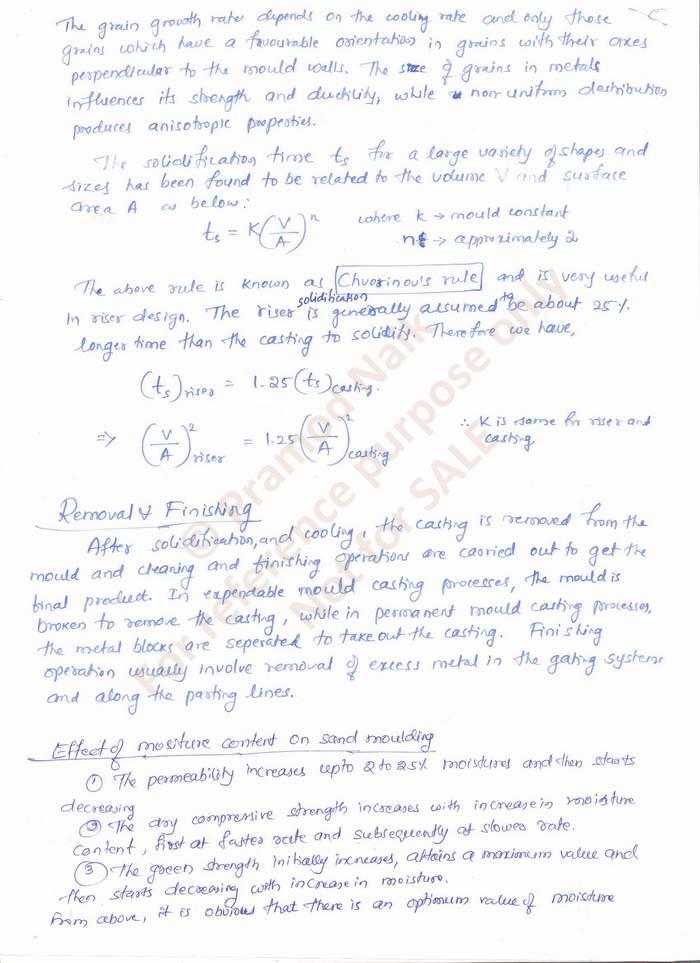 The grain growth rate depends on the cooling rate and only those
grains which have a favourable orientation in grains with their axes
perpendicular to the mould walls. The size of grains in metals
influences its strength and ductility, while non-uniform destribution
produces anisotropic properties.
The solidification time ts for a large variety of shapes and
sizes has been found to be related to the volume V and surface
area A as below:
ts = K(V/A)^n where k → mould constant
n → approximately 2
The above rule is known as Chvorinov's rule and is very useful
In riser design. The riser solidification is generally assumed to be about 25%
longer time than the casting to solidify. Therefore we have,
(ts)riser = 1.25 (ts)casting.
⇒ (V/A)²riser = 1.25 (V/A)²casting ∴ K is same for riser and
casting
Removal & Finishing
After solidification, and cooling, the casting is removed from the
mould and cleaning and finishing operations are carried out to get the
final product. In expendable mould casting processes, the mould is
broken to remove the casting, while in permanent mould casting processes,
the metal blocks are seperated to take out the casting. Finishing
operation usually involve removal of excess metal in the gating systems
and along the parting lines.
Effect of mositure content on sand moulding
① The permeability increases upto 2 to 25% moistures and then starts
decreasing
② The dry compressive strength increases with increase in moisture
content, first at faster rate and subsequently at slower rate.
③ The green strength initially increases, attains a maximum value and
then starts decreasing with increase in moisture.
From above, it is obvious that there is an optimum value of moisture
© Pramod Naik
For reference purpose only
Not for SALE